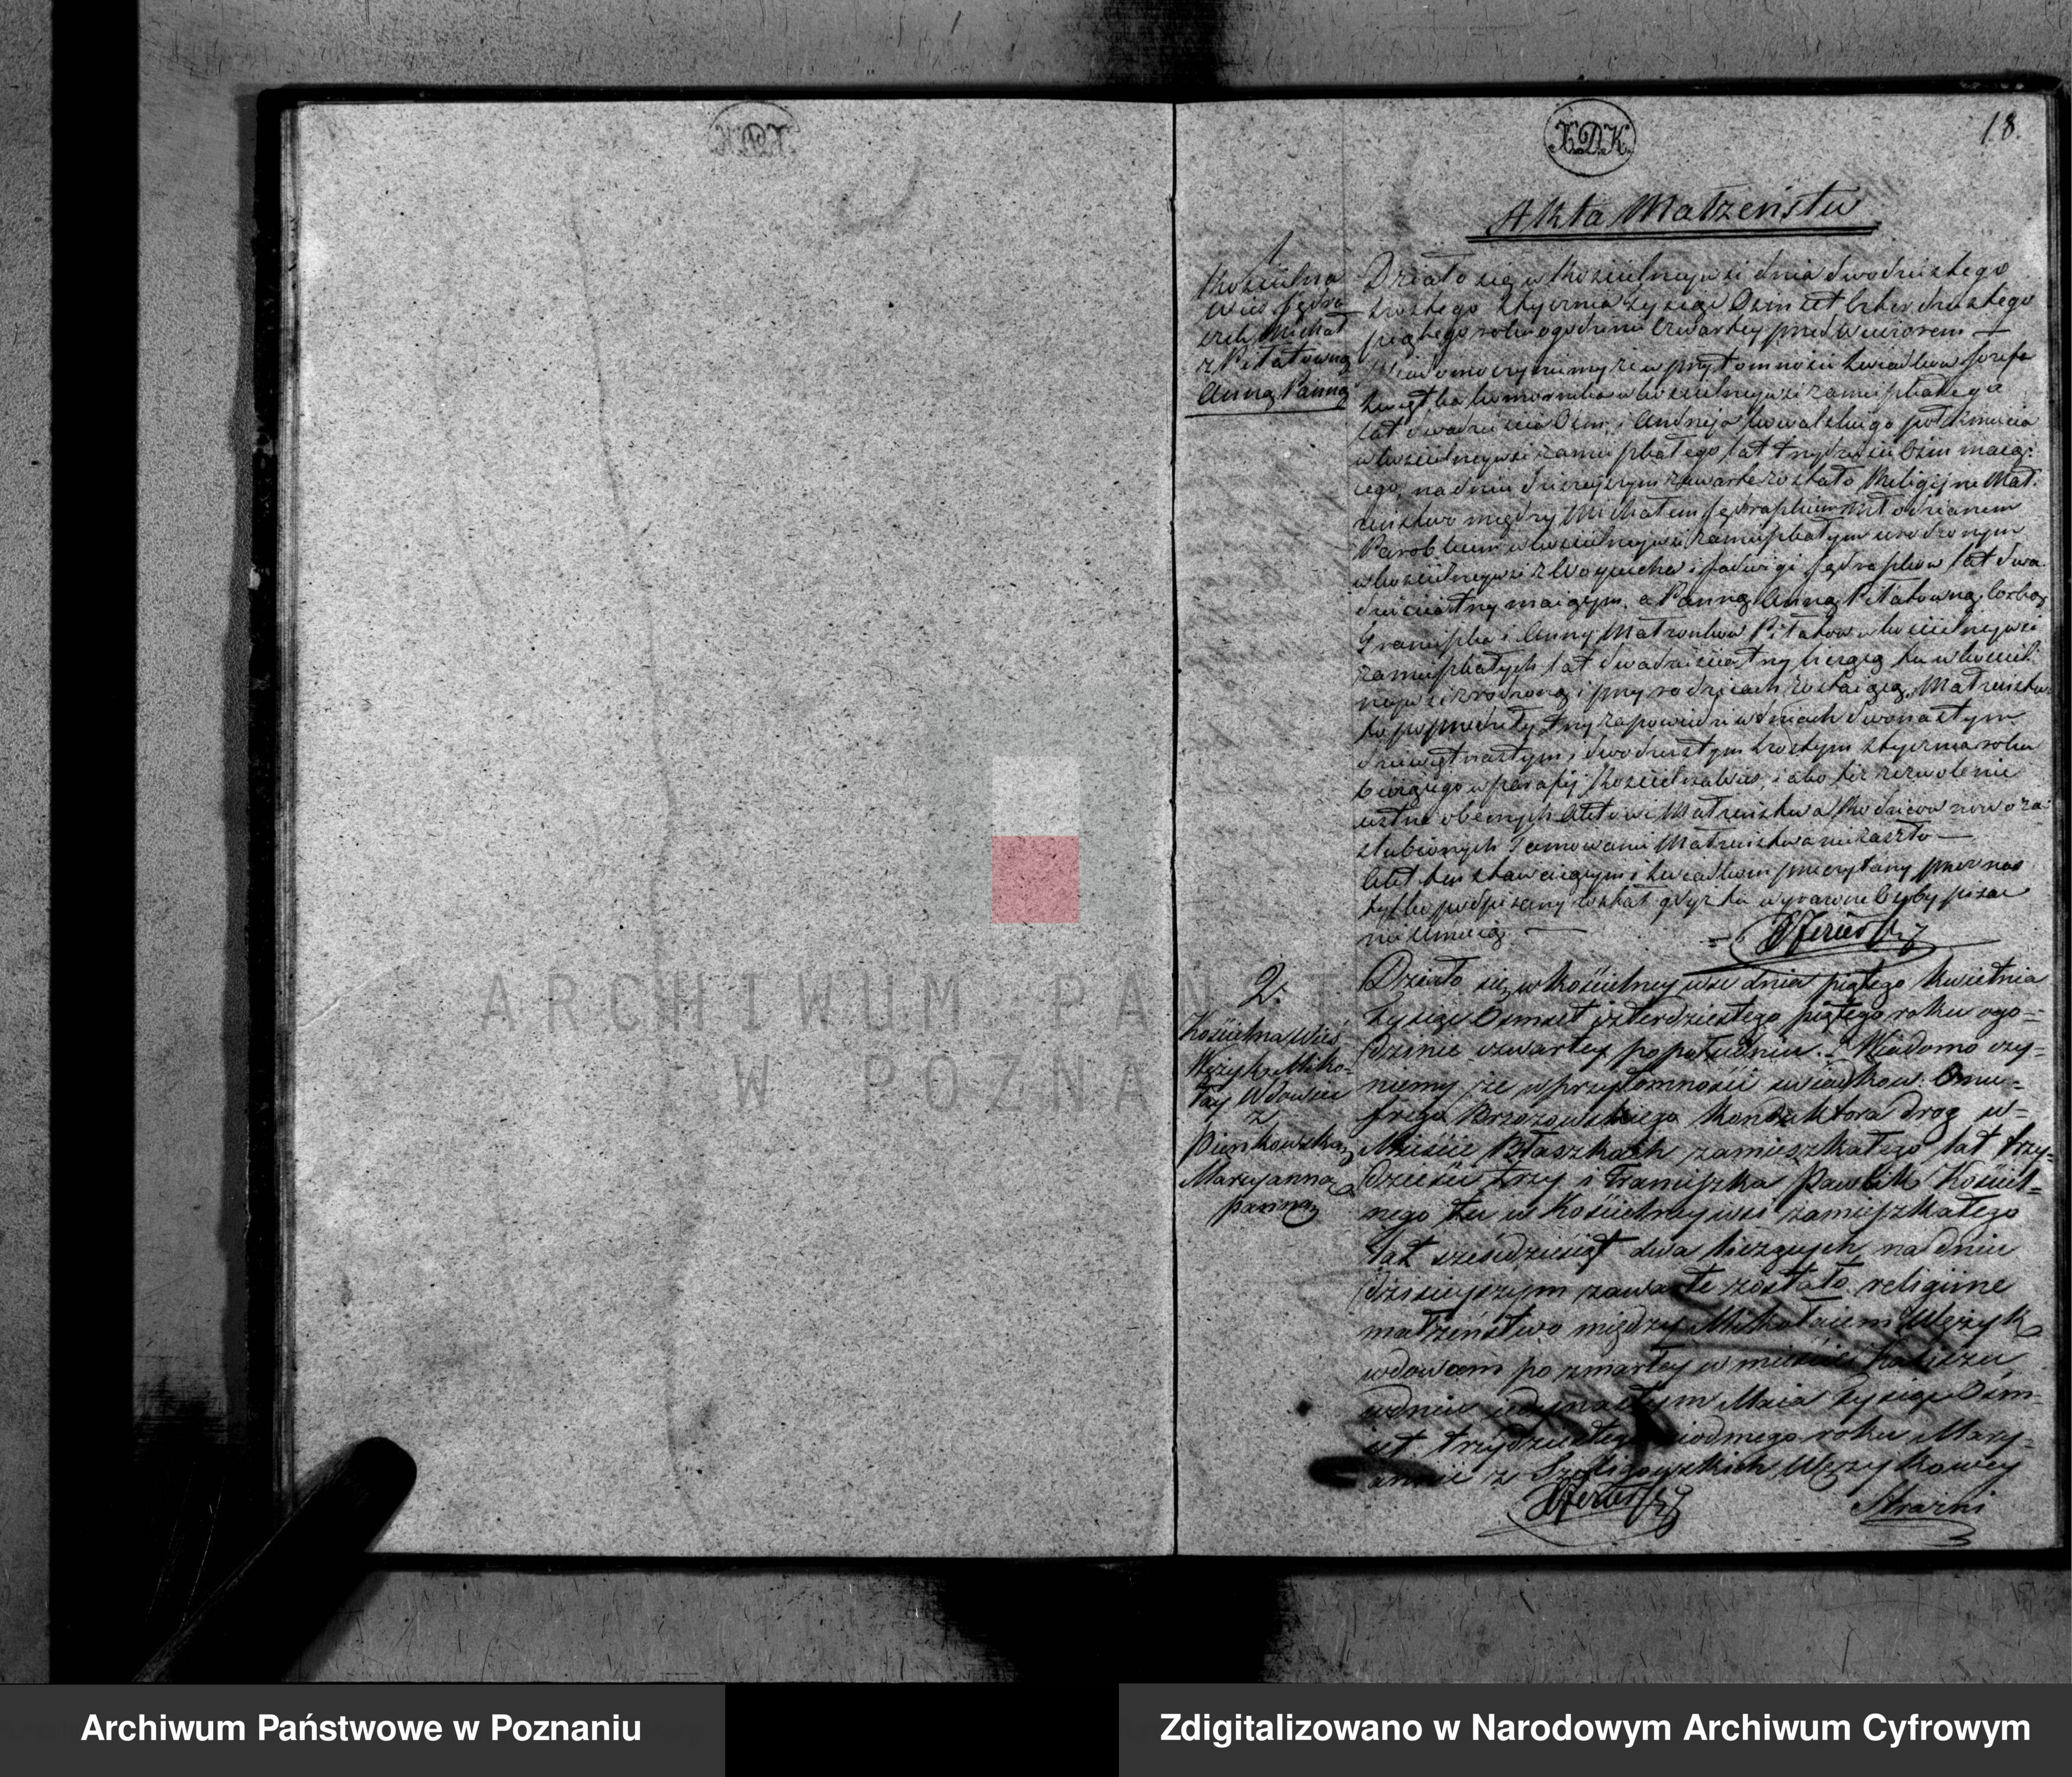 X.D.K.
18.
Akta Małżeństw
1
Kościelna
Wieś Jędra
szek Michał
z Pitatowną
Anną Panną
Działo się w Kościelneywsi dnia dwudziestego
szóstego Stycznia tysiąc Ośm set Czterdziestego
piątego roku o godzinie Czwartey przed wieczorem —
Wiadomo czyniemy że w przytomności Swiadków Józefa
komornika w Kościelneywsi zamieszkałego
lat dwadzieścia Ośm, i Andrzeja Kowalskiego
w Kościelneywsi zamieszkałego lat trzydzieści Ośm maią
cego, na dniu dzisieyszym zawarte zostało Religijne Mał
żeństwo między Michałem Jędraszkiem Młodzianem
Parobkiem w Kościelneywsi zamieszkałym urodzonym
w Kościelneywsi z Woyciecha i Jadwigi Jędraszków lat dwa
dzieścia trzy maiącym, a Panną Anną Pitatowną, Corką
Franciszka i Anny Małżonków Pitatow w Kościelneywsi
zamieszkałych lat dwadzieścia trzy liczącą tu w Kościel
neywsi zrodzoną i przy rodzicach zostaiącą. Małżeństwo
to poprzedziły trzy zapowiedzi w dniach dwunastym
dziewiętnastym, i dwudziestym szóstym Stycznia roku
bieżącego w parafij Kościelnawieś, iako też zezwolenie
ustne obecnych Aktowi Małżeństwa Rodziców nowo za
ślubionych Tamowanie Małżeństwa nie zaszło —
Akt ten stawaiącym i świadkom przeczytany przez nas
tylko podpisany został gdyż ta wyrażone Osoby pisać
nie Umieią —
2.
Kościelna Wieś
Wężyk Miko-
łay Wdowiec
z
Pienkowską
Maryanną
panną
Działo się w Kościelney wsi dnia piątego Kwietnia
tysiąc Ośmset czterdziestego piątego roku o go=
dzinie czwartey po południu. Wiadomo czy=
niemy że w przytomności świadków Onu=
frego Brzozowskiego Konduktora dróg w=
Mieście Błaszkach zamieszkałego lat trzy=
dzieści trzy i Franciszka Pawlik Kościel=
nego tu w Kościelney wsi zamieszkałego
lat sześćdziesiąt dwa liczących, na dniu
dzisieyszym zawarte zostało religiine
małżeństwo między Mikołaiem Wężyk
wdowcem po zmarłey w mieście Kaliszu
w dniu iedynastym Maia tysiąc Ośm-
set trzydziestego siodmego roku Mary=
annie z Wężykowey
Strażni
ARCHIWUM PAŃST
W POZNA
Archiwum Państwowe w Poznaniu
Zdigitalizowano w Narodowym Archiwum Cyfrowym